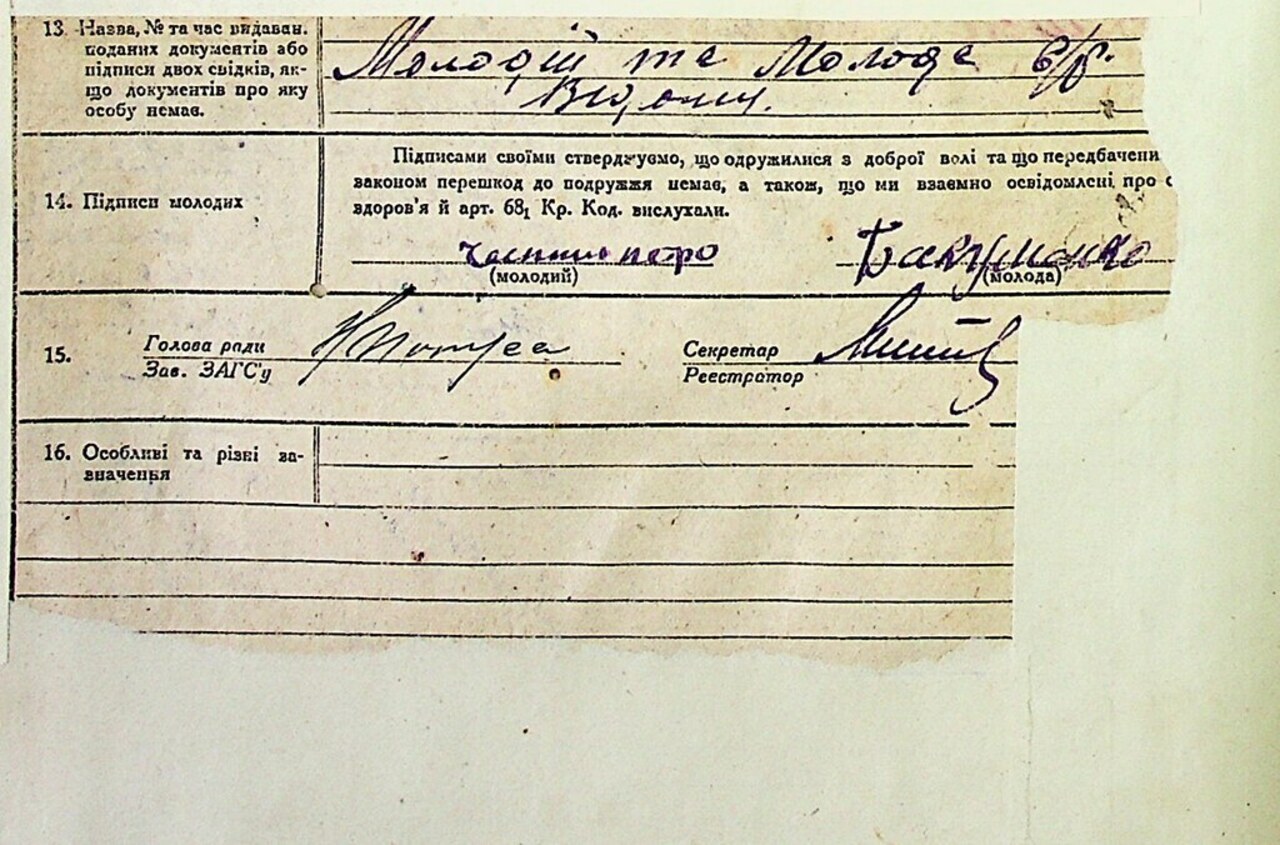 13 Назва, № та час видаван.
поданих документів або
підписи двох свідків, як-
що документів про яку
особу немає.
Молодий та Молода
14. Підписи молодих
Підписами своїми стверджуємо, що одружилися з доброї волі та що передбачени
законом перешкод до подружжя немає, а також, що ми взаємно освідомлені про с
здоров'я й арт. 68₁ Кр. Код. вислухали.
петро
(молодий)
Бакуменко
(молода)
15.
Голова ради
Зав. ЗАГС'у
Секретар
Реєстратор
16. Особливі та різні за-
значення